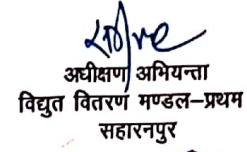 अधीक्षण अभियन्ता
विद्युत वितरण मण्डल-प्रथम
सहारनपुर